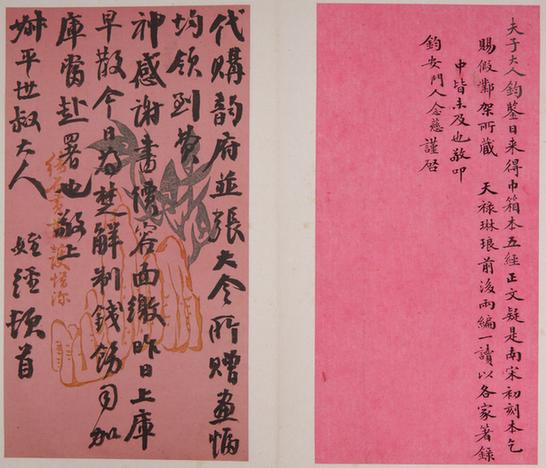 夫子大人鈞鑒日來得巾箱本五經正文疑是南宋初刻本乞
賜假鄴架所藏 天祿琳琅前後兩編一讀以各家著錄
中皆未及也敬叩
鈞安門人念慈謹啓
代購韵府並張大令所贈畫幅
均領到費
神感謝書價容面繳昨日上庫
早散今日為楚解制錢飭司加
庫當赴署也敬上
叔平世叔大人 姪經頓首